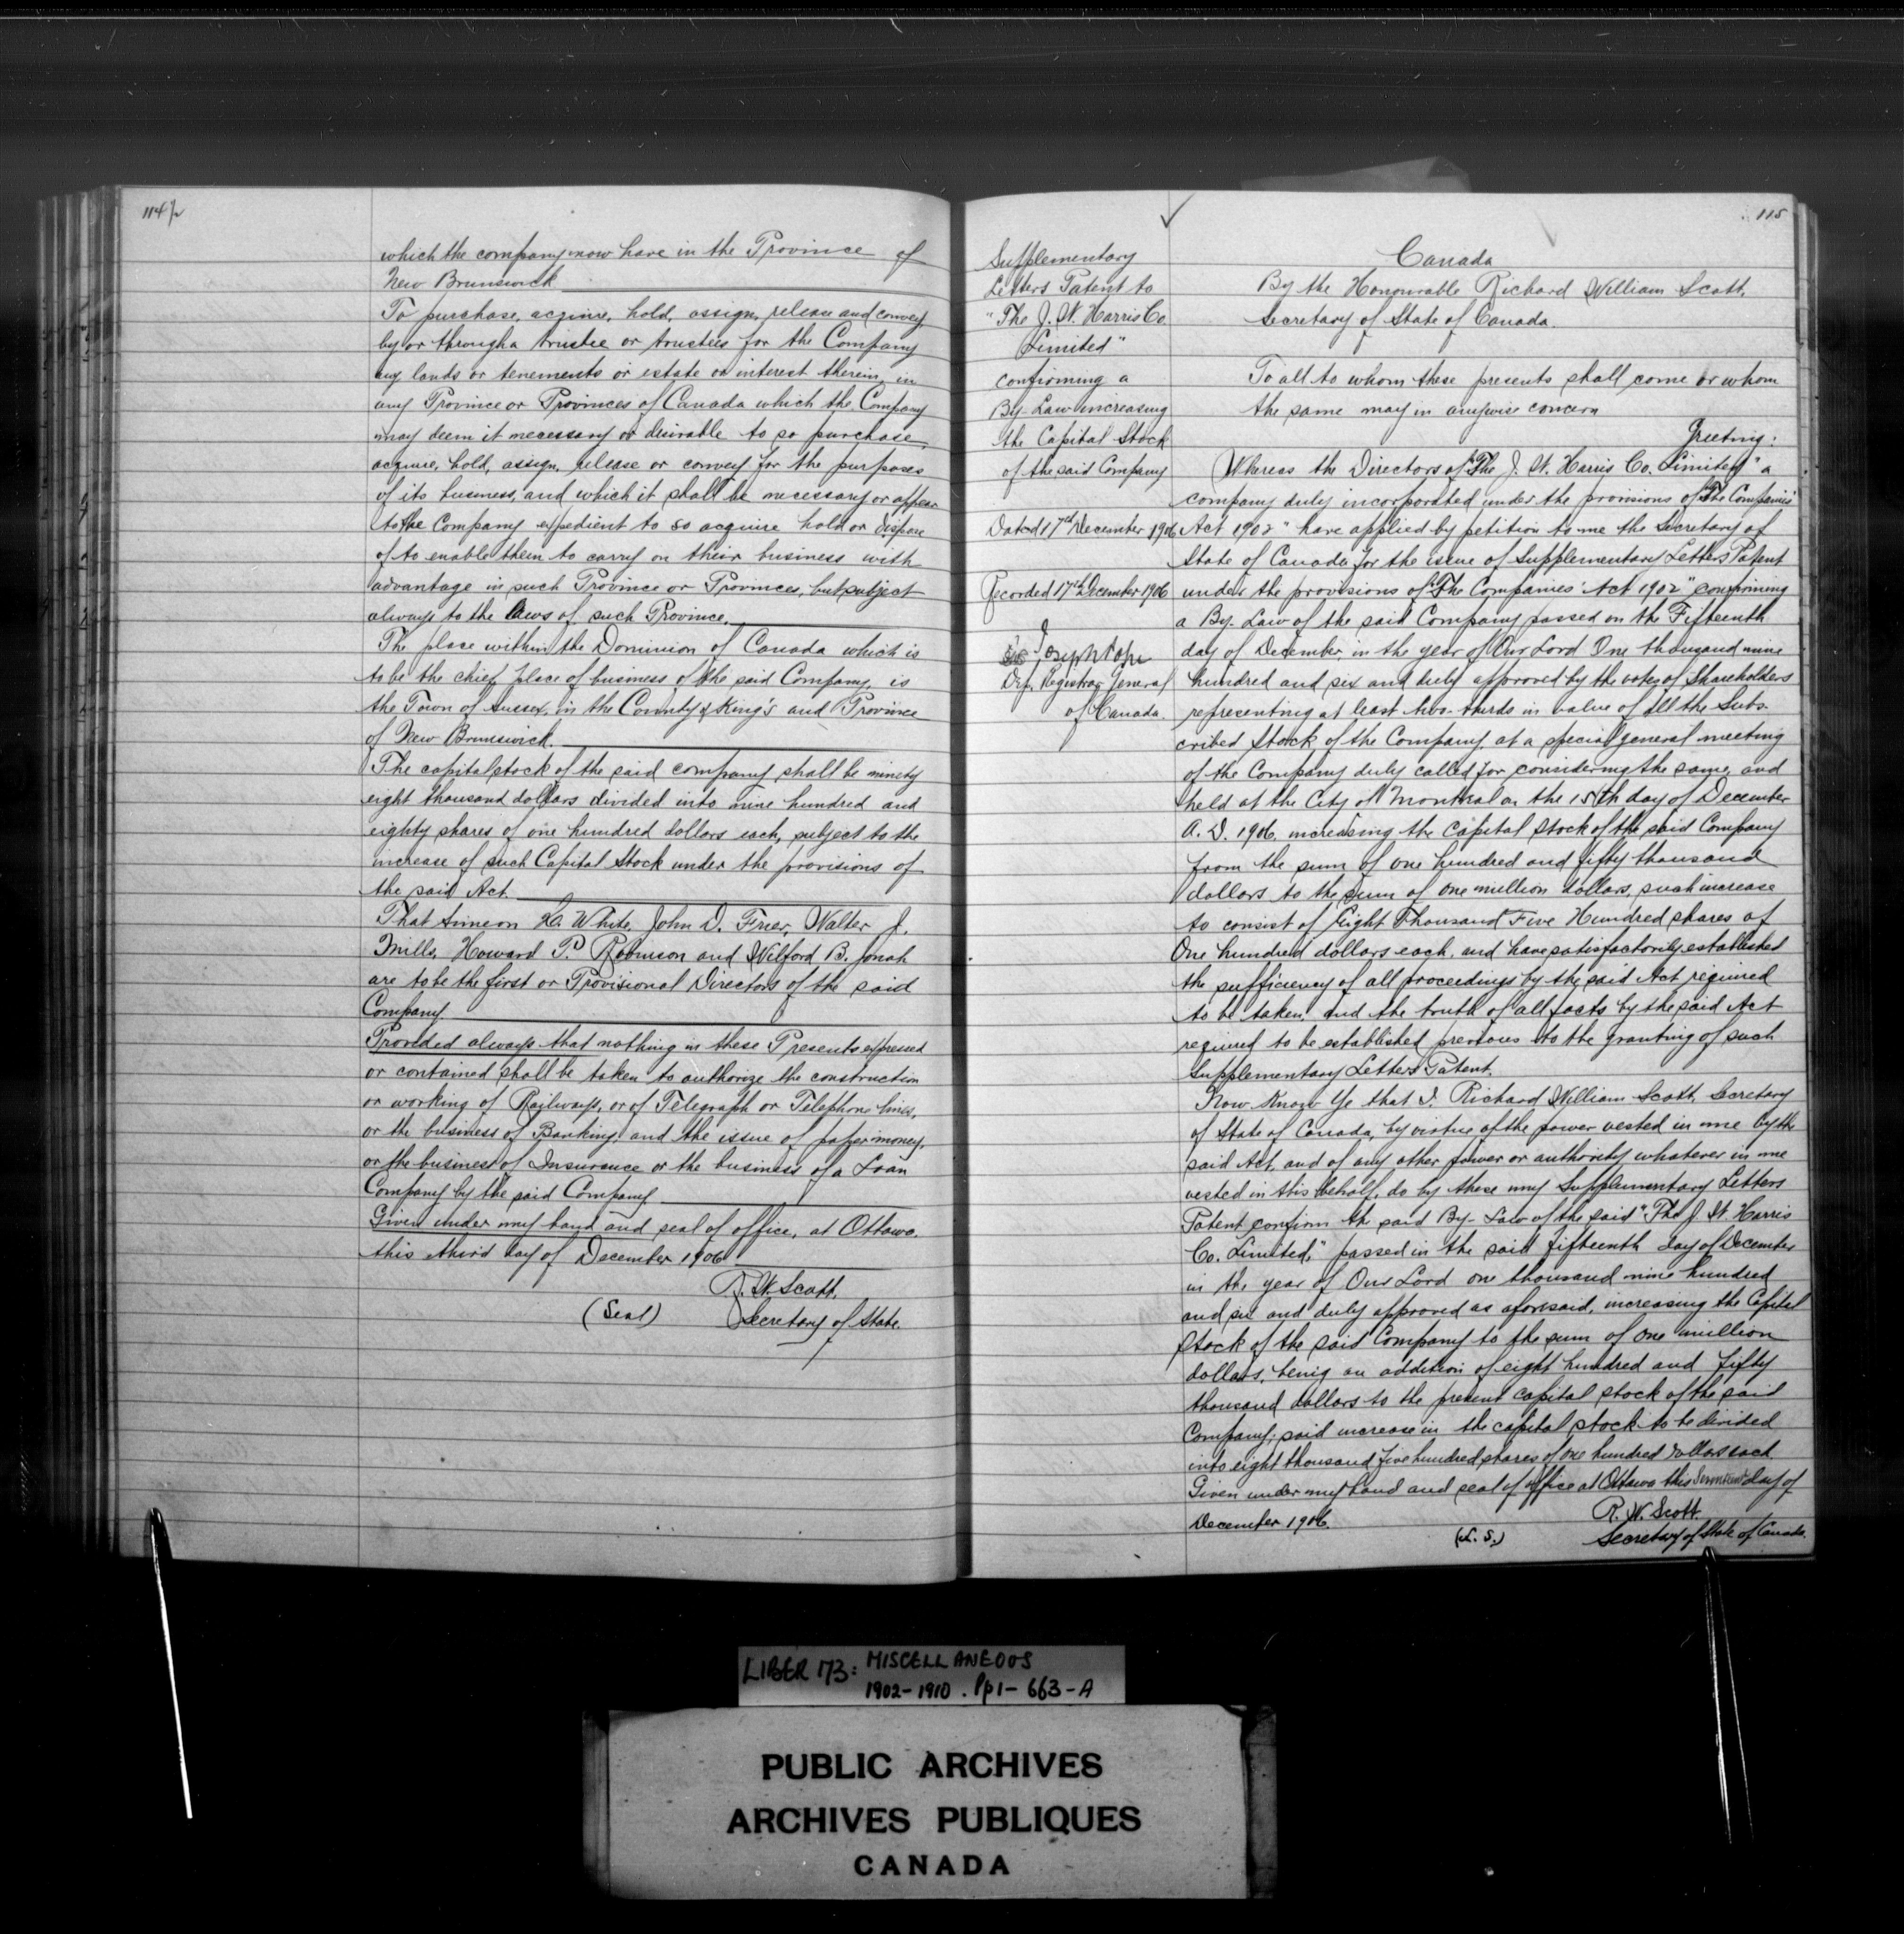 114½
which the company now have in the Province of
New Brunswick
To purchase, acquire, hold, assign, release and convey
by or through a trustee or trustees for the Company
any lands or tenements or estate or interest therein, in
any Province or Provinces of Canada which the Company
may deem it necessary or desirable to so purchase,
acquire, hold, assign, release or convey for the purposes
of its business, and which it shall be necessary or appear
to the Company expedient to so acquire hold or dispose
of to enable them to carry on their business with
advantage in such Province or Provinces, but subject
always to the laws of such Province.
The place within the Dominion of Canada which is
to be the chief place of business of the said Company, is
the Town of Sussex, in the County of King's and Province
of New Brunswick.
The capital stock of the said company shall be ninety
eight thousand dollars divided into nine hundred and
eighty shares of one hundred dollars each, subject to the
increase of such Capital Stock under the provisions of
the said Act.
That Simeon H. White, John D. Frier, Walter J.
Mills, Howard P. Robinson and Wilford B. Jonah
are to be the first or Provisional Directors of the said
Company
Provided always that nothing in these Presents expressed
or contained shall be taken to authorize the construction
or working of Railways, or of Telegraph or Telephone lines,
or the business of Banking and the issue of paper money,
or the business of Insurance or the business of a Loan
Company by the said Company
Given under my hand and seal of office, at Ottawa,
this third day of December 1906
R. W. Scott,
(Seal) Secretary of State.
115
Supplementary
Letters Patent to
"The J. W. Harris Co.
Limited"
confirming a
By-Law increasing
the Capital Stock
of the said Company
Dated 17th December 1906
Recorded 17th December 1906
Joseph Pope
Dep. Registrar General
of Canada.
Canada
By the Honourable Richard William Scott,
Secretary of State of Canada.
To all to whom these presents shall come or whom
the same may in anywise concern
Greeting:
Whereas the Directors of "The J. W. Harris Co. Limited" a
company duly incorporated under the provisions of "The Companies
Act 1902" have applied by petition to me the Secretary of
State of Canada for the issue of Supplementary Letters Patent
under the provisions of "The Companies Act 1902" confirming
a By-Law of the said Company passed on the Fifteenth
day of December, in the year of Our Lord One thousand nine
hundred and six and duly approved by the votes of Shareholders
representing at least two-thirds in value of all the Subs-
cribed Stock of the Company, at a special general meeting
of the Company duly called for considering the same, and
held at the City of Montreal on the 15th day of December
A. D. 1906, increasing the Capital Stock of the said Company
from the sum of one hundred and fifty thousand
dollars to the sum of one million dollars, such increase
to consist of Eight Thousand Five Hundred shares of
One hundred dollars each, and have satisfactorily established
the sufficiency of all proceedings by the said Act required
to be taken and the truth of all facts by the said Act
required to be established previous to the granting of such
Supplementary Letters Patent.
Now Know Ye that I, Richard William Scott, Secretary
of State of Canada, by virtue of the power vested in me by the
said Act, and of any other power or authority whatever in me
vested in this behalf, do by these my Supplementary Letters
Patent confirm the said By-Law of the said "The J. W. Harris
Co. Limited," passed in the said fifteenth day of December
in the year of Our Lord one thousand nine hundred
and six and duly approved as aforesaid, increasing the Capital
Stock of the said Company to the sum of One million
dollars, being an addition of eight hundred and fifty
thousand dollars to the present capital stock of the said
Company; said increase in the capital stock to be divided
into eight thousand five hundred shares of one hundred dollars each
Given under my hand and seal of office at Ottawa this Seventeenth day of
December 1906.
R. W. Scott.
(L. S.) Secretary of State of Canada.
LIBER 173: MISCELLANEOUS
1902-1910. Pp 1-663-A
PUBLIC ARCHIVES
ARCHIVES PUBLIQUES
CANADA